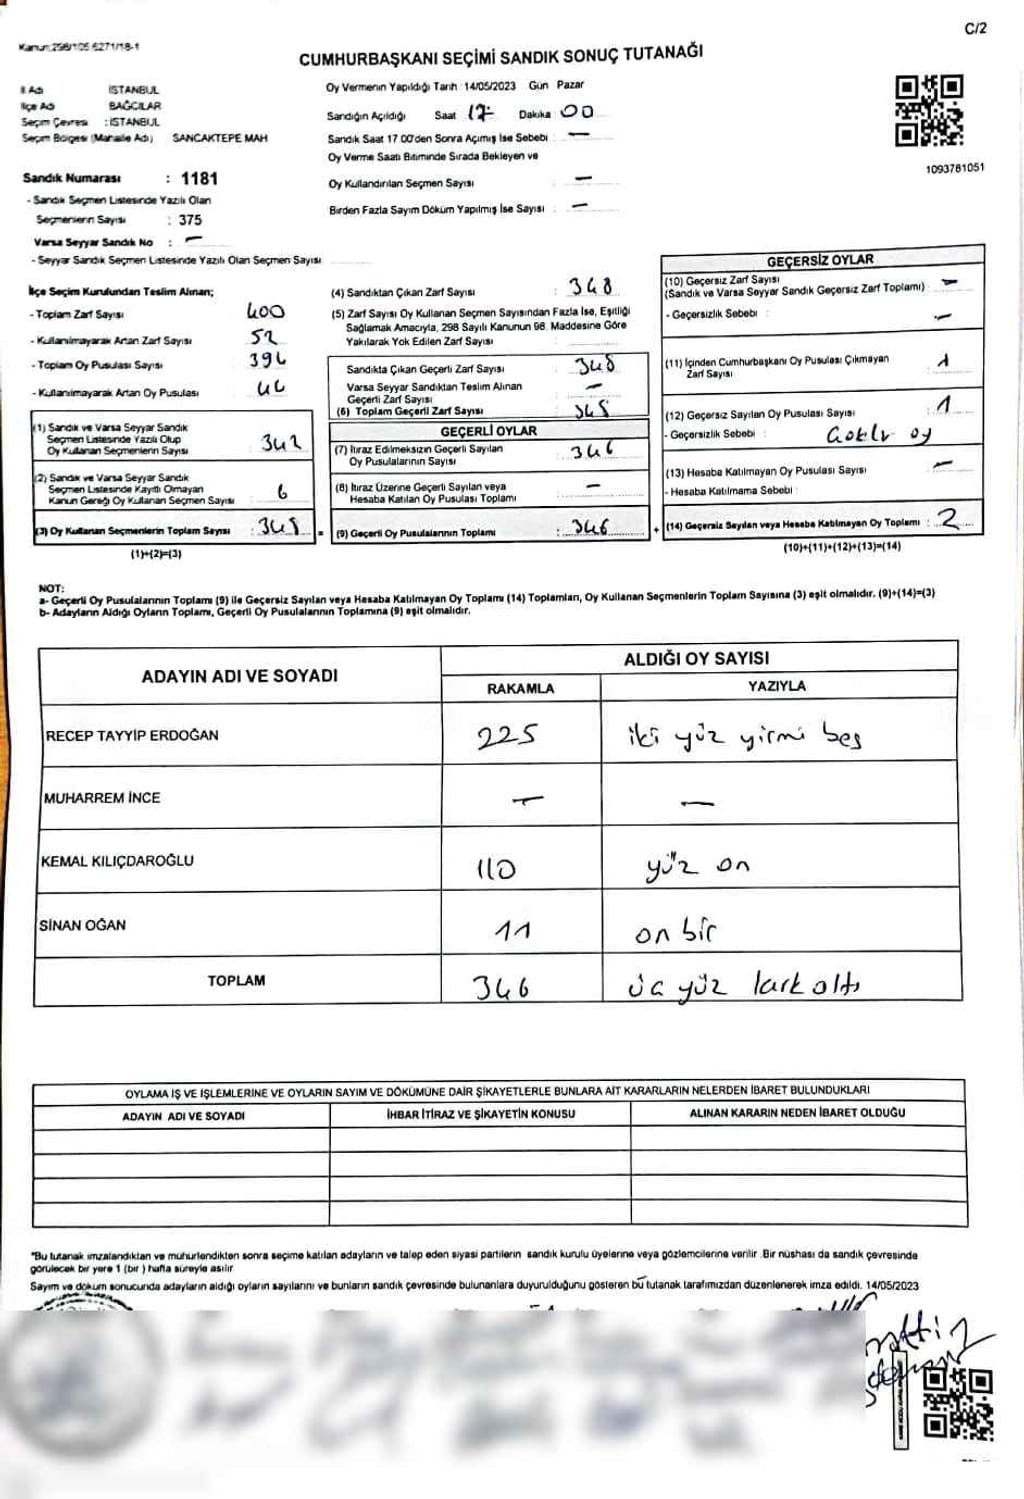 C/2
Kanun:298/105 6271/18-1
CUMHURBAŞKANI SEÇİMİ SANDIK SONUÇ TUTANAĞI
İl Adı İSTANBUL
İlçe Adı BAĞCILAR
Seçim Çevresi : İSTANBUL
Seçim Bölgesi (Mahalle Adı) SANCAKTEPE MAH
Sandık Numarası : 1181
- Sandık Seçmen Listesinde Yazılı Olan
Seçmenlerin Sayısı : 375
Varsa Seyyar Sandık No : -
- Seyyar Sandık Seçmen Listesinde Yazılı Olan Seçmen Sayısı
Oy Vermenin Yapıldığı Tarih : 14/05/2023 Gün Pazar
Sandığın Açıldığı Saat 17 Dakika : 00
Sandık Saat 17 00'den Sonra Açımış İse Sebebi : -
Oy Verme Saati Bitiminde Sırada Bekleyen ve
Oy Kullandırılan Seçmen Sayısı : -
Birden Fazla Sayım Döküm Yapılmış İse Sayısı : -
1093781051
İlçe Seçim Kurulundan Teslim Alınan;
- Toplam Zarf Sayısı 400
- Kullanılmayarak Artan Zarf Sayısı 52
- Toplam Oy Pusulası Sayısı 394
- Kullanılmayarak Artan Oy Pusulası 46
(1) Sandık ve Varsa Seyyar Sandık
Seçmen Listesinde Yazılı Olup
Oy Kullanan Seçmenlerin Sayısı : 342
(2) Sandık ve Varsa Seyyar Sandık
Seçmen Listesinde Kayıtlı Olmayan
Kanun Gereği Oy Kullanan Seçmen Sayısı : 6
(3) Oy Kullanan Seçmenlerin Toplam Sayısı : 348 =
(1)+(2)=(3)
(4) Sandıktan Çıkan Zarf Sayısı : 348
(5) Zarf Sayısı Oy Kullanan Seçmen Sayısından Fazla İse, Eşitliği
Sağlamak Amacıyla, 298 Sayılı Kanunun 98. Maddesine Göre
Yakılarak Yok Edilen Zarf Sayısı
Sandıkta Çıkan Geçerli Zarf Sayısı : 348
Varsa Seyyar Sandıktan Teslim Alınan
Geçerli Zarf Sayısı : -
(6) Toplam Geçerli Zarf Sayısı : 348
GEÇERLİ OYLAR
(7) İtiraz Edilmeksizin Geçerli Sayılan
Oy Pusulalarının Sayısı : 346
(8) İtiraz Üzerine Geçerli Sayılan veya
Hesaba Katılan Oy Pusulası Toplamı : -
(9) Geçerli Oy Pusulalarının Toplamı : 346 +
GEÇERSİZ OYLAR
(10) Geçersiz Zarf Sayısı
(Sandık ve Varsa Seyyar Sandık Geçersiz Zarf Toplamı) : -
- Geçersizlik Sebebi : -
(11) İçinden Cumhurbaşkanı Oy Pusulası Çıkmayan
Zarf Sayısı 1
(12) Geçersiz Sayılan Oy Pusulası Sayısı : 1
- Geçersizlik Sebebi : oy
(13) Hesaba Katılmayan Oy Pusulası Sayısı : -
- Hesaba Katılmama Sebebi :
(14) Geçersiz Sayılan veya Hesaba Katılmayan Oy Toplamı : 2
(10)+(11)+(12)+(13)=(14)
NOT:
a- Geçerli Oy Pusulalarının Toplamı (9) ile Geçersiz Sayılan veya Hesaba Katılmayan Oy Toplamı (14) Toplamları, Oy Kullanan Seçmenlerin Toplam Sayısına (3) eşit olmalıdır. (9)+(14)=(3)
b- Adayların Aldığı Oyların Toplamı, Geçerli Oy Pusulalarının Toplamına (9) eşit olmalıdır.
ADAYIN ADI VE SOYADI ALDIĞI OY SAYISI
RAKAMLA YAZIYLA
RECEP TAYYİP ERDOĞAN 225 iki yüz yirmi beş
MUHARREM İNCE - -
KEMAL KILIÇDAROĞLU 110 yüz on
SİNAN OĞAN 11 on bir
TOPLAM 346 üç yüz kırk altı
OYLAMA İŞ VE İŞLEMLERİNE VE OYLARIN SAYIM VE DÖKÜMÜNE DAİR ŞİKAYETLERLE BUNLARA AİT KARARLARIN NELERDEN İBARET BULUNDUKLARI
ADAYIN ADI VE SOYADI İHBAR İTİRAZ VE ŞİKAYETİN KONUSU ALINAN KARARIN NEDEN İBARET OLDUĞU
*Bu tutanak imzalandıktan ve mühürlendikten sonra seçime katılan adayların ve talep eden siyasi partilerin sandık kurulu üyelerine veya gözlemcilerine verilir .Bir nüshası da sandık çevresinde
görülecek bir yere 1 (bir) hafta süreyle asılır.
Sayım ve döküm sonucunda adayların aldığı oyların sayılarını ve bunların sandık çevresinde bulunanlara duyurulduğunu gösteren bu tutanak tarafımızdan düzenlenerek imza edildi. 14/05/2023